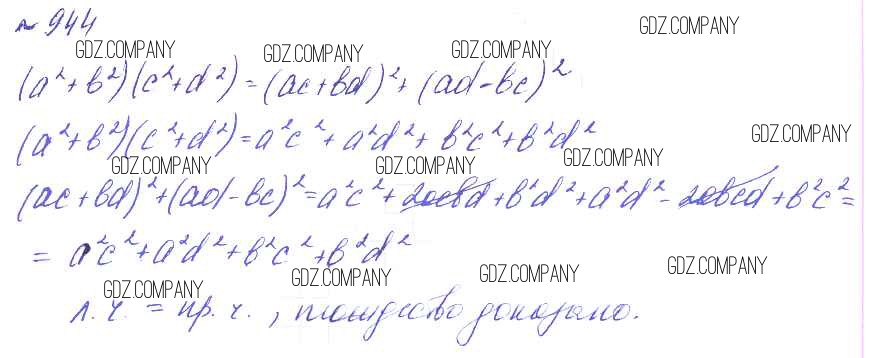 № 944
GDZ.COMPANY
GDZ.COMPANY GDZ.COMPANY GDZ.COMPANY
(a²+b²)(c²+d²)=(ac+bd)²+(ad-bc)²
(a²+b²)(c²+d²)=a²c²+a²d²+b²c²+b²d²
GDZ.COMPANY
GDZ.COMPANY GDZ.COMPANY GDZ.COMPANY
(ac+bd)²+(ad-bc)²=a²c²+2acbd+b²d²+a²d²-2abcd+b²c²=
=a²c²+a²d²+b²c²+b²d²
GDZ.COMPANY GDZ.COMPANY GDZ.COMPANY GDZ.COMPANY
л.ч. = пр.ч., тождество доказано.